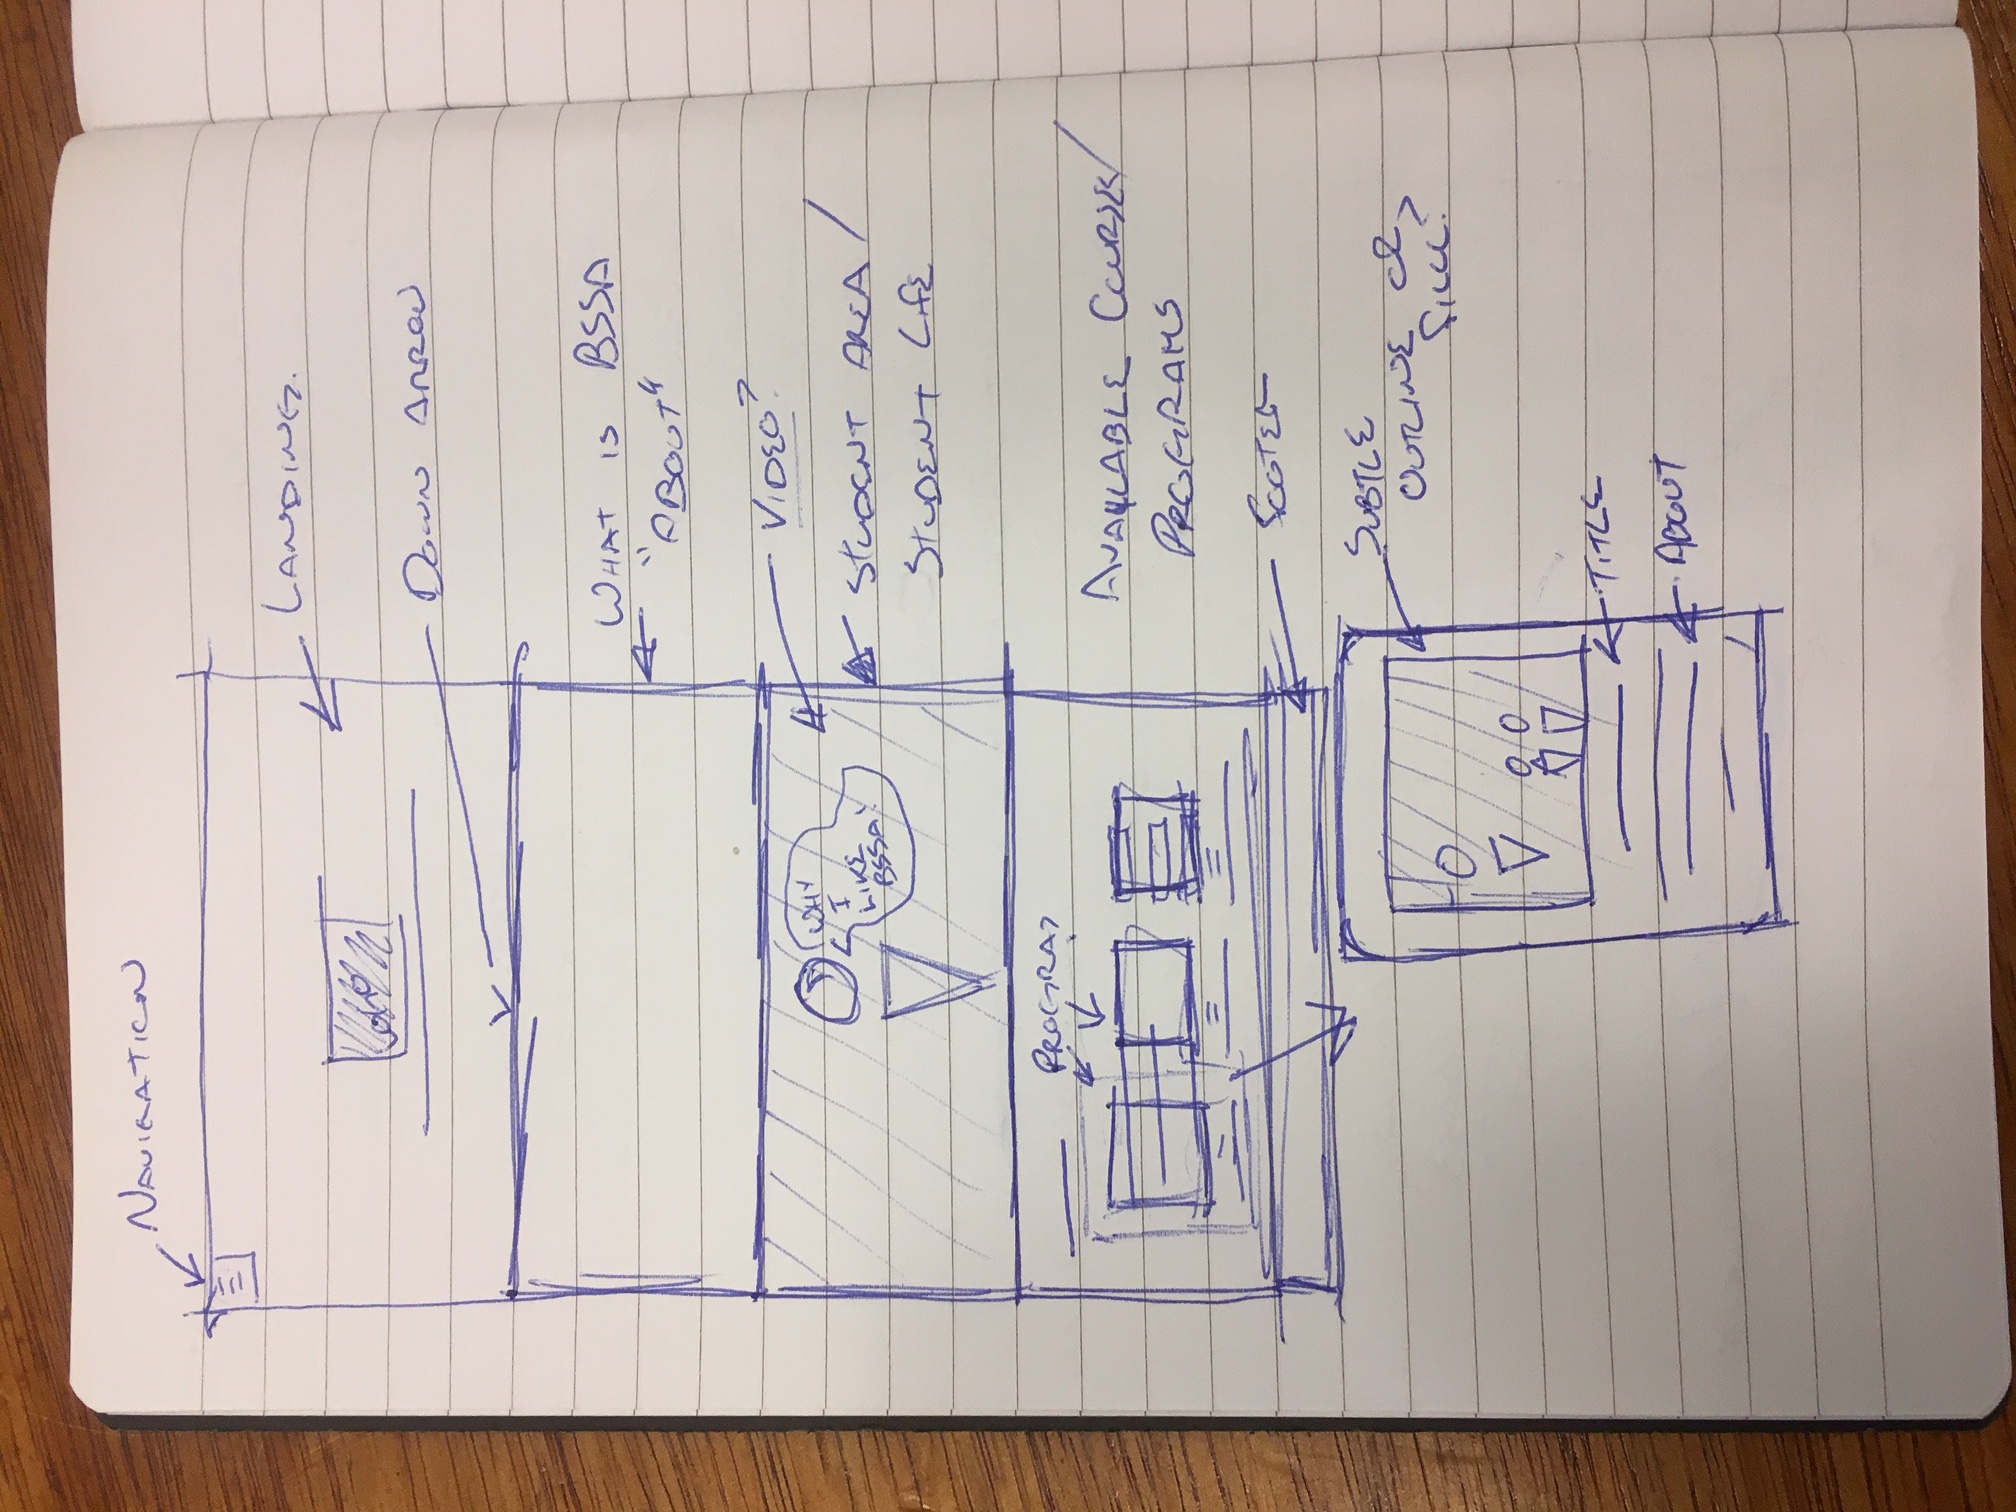 NAVIGATION
LANDING.
LOGO
DOWN ARROW
WHAT IS BSSA
"ABOUT"
VIDEO?
WHY
I
LIKE
BSSA!
STUDENT AREA/
STUDENT LIFE
PROGRAM
AVAILABLE COURSES/
PROGRAMS
FOOTER
SUBTLE
OUTLINE OR
FILL?
TITLE
ABOUT